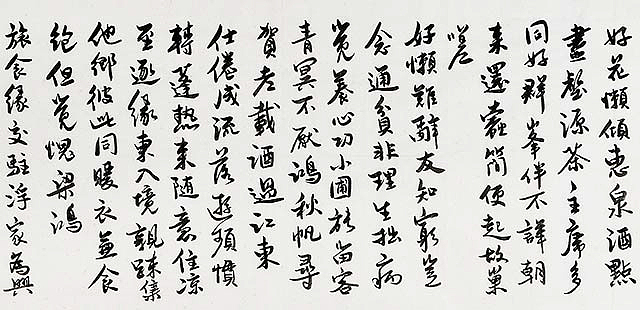 好花懶傾惠泉酒點
盡壑源茶主席多
同好群峯伴不譁朝
来還蠹簡便起故巢
嗟
好懶難辭友知窮豈
念通貧非理生拙病
覺養心功小圃能留客
青冥不厭鴻秋帆尋
賀老載酒過江東
仕倦成流落遊頻慣
轉蓬熱来随意住凉
至逐緣東入境親踈集
他鄉彼此同暖衣兼食
飽但覺愧梁鴻
旅食緣交駐浮家為興